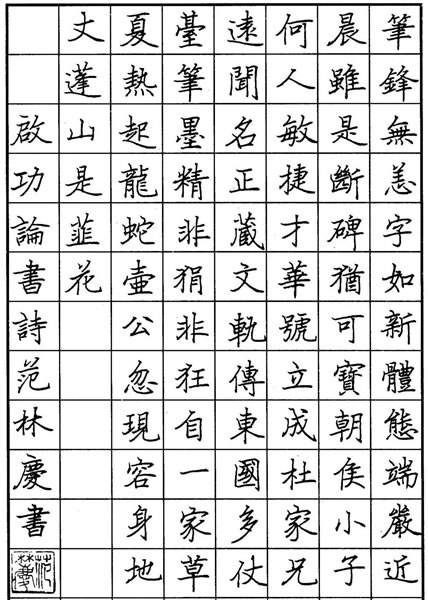 筆鋒無恙字如新體態端嚴近
晨雖是斷碑猶可寶朝侯小子
何人敏捷才華號立成杜家兄
遠聞名正藏文軌傳東國多仗
臺筆墨精非狷非狂自一家草
夏熱起龍蛇壺公忽現容身地
丈蓬山是韮花
啟功論書詩范林慶書
范林慶